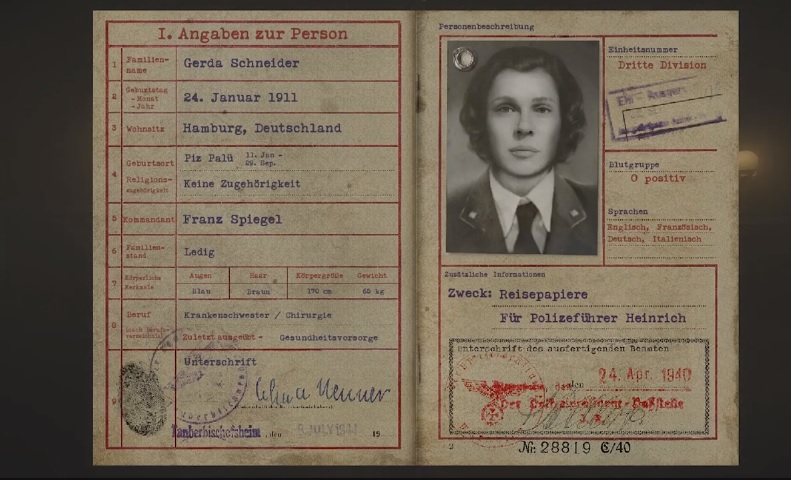 I. Angaben zur Person
1 Familien-
name
Gerda Schneider
2 Geburtstag
- Monat
- Jahr
24. Januar 1911
3 Wohnsitz
Hamburg, Deutschland
4 Geburtsort
Piz Palü 11. Jan -
29. Sep.
Religions-
zugehörigkeit
Keine Zugehörigkeit
5 Kommandant
Franz Spiegel
6 Familien-
stand
Ledig
7 Körperliche
Merkmale
Augen Haar Körpergröße Gewicht
Blau Braun 170 cm
8 Beruf
Krankenschwester / Chirurgie
Zuletzt ausgeübt - Gesundheitsvorsorge
9 Unterschrift
Tauberbischofsheim, den JULY 19
Personenbeschreibung
Einheitsnummer
Dritte Division
Blutgruppe
O positiv
Sprachen
Englisch, Französisch,
Deutsch, Italienisch
Zusätzliche Informationen
Zweck: Reisepapiere
Für Polizeführer Heinrich
Unterschrift des ausfertigenden Beamten
24. Apr. 1940
Der
№ 28819 C/40